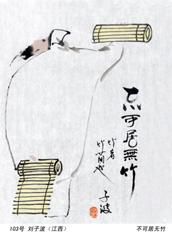 不可居無竹
竹者
竹簡也
子波
103号 刘子波（江西）
不可居无竹